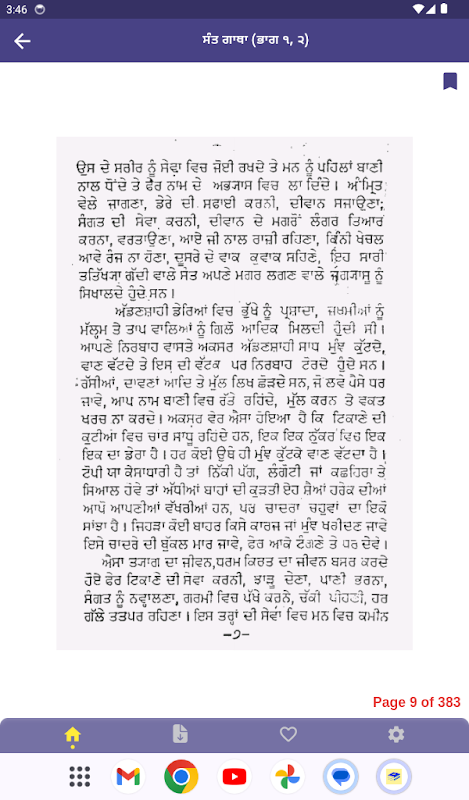 3:46
ਸੰਤ ਗਾਥਾ (ਭਾਗ ੧, ੨)
ਉਸ ਦੇ ਸਰੀਰ ਨੂੰ ਸੇਵਾ ਵਿਚ ਜੋਈ ਰਖਦੇ ਤੇ ਮਨ ਨੂੰ ਪਹਿਲਾਂ ਬਾਣੀ
ਨਾਲ ਧੋਂਦੇ ਤੇ ਫੇਰ ਨਾਮ ਦੇ ਅਭਯਾਸ ਵਿਚ ਲਾ ਦਿੰਦੇ। ਅੰਮ੍ਰਿਤ
ਵੇਲੇ ਜਾਗਣਾ, ਡੇਰੇ ਦੀ ਸਫਾਈ ਕਰਨੀ, ਦੀਵਾਨ ਸਜਾਉਣਾ;
ਸੰਗਤ ਦੀ ਸੇਵਾ ਕਰਨੀ, ਦੀਵਾਨ ਦੇ ਮਗਰੋਂ ਲੰਗਰ ਤਿਆਰ
ਕਰਨਾ, ਵਰਤਾਉਣਾ, ਆਏ ਜੀ ਨਾਲ ਰਾਜ਼ੀ ਰਹਿਣਾ, ਕਿੰਨੀ ਖੇਚਲ
ਆਵੇ ਰੰਜ ਨਾ ਹੋਣਾ, ਦੂਸਰੇ ਦੇ ਵਾਕ ਕੁਵਾਕ ਸਹਿਣੇ, ਇਹ ਸਾਰੀ
ਤਤਿੱਖਯਾ ਗੱਦੀ ਵਾਲੇ ਸੰਤ ਅਪਣੇ ਮਗਰ ਲਗਣ ਵਾਲੇ ਜੁੱਗਯਾਸੂ ਨੂੰ
ਸਿਖਾਲਦੇ ਹੁੰਦੇ ਸਨ।
ਅੱਡਣਸ਼ਾਹੀ ਡੇਰਿਆਂ ਵਿਚ ਭੁੱਖੇ ਨੂੰ ਪ੍ਰਸ਼ਾਦਾ, ਜ਼ਖਮੀਆਂ ਨੂੰ
ਮੱਲ੍ਹਮ ਤੇ ਤਾਪ ਵਾਲਿਆਂ ਨੂੰ ਗਿਲੋ ਆਦਿਕ ਮਿਲਦੀ ਹੁੰਦੀ ਸੀ।
ਆਪਣੇ ਨਿਰਬਾਹ ਵਾਸਤੇ ਅਕਸਰ ਅੱਡਣਸ਼ਾਹੀ ਸਾਧ ਮੁੰਞ ਕੁੱਟਦੇ,
ਵਾਣ ਵੱਟਦੇ ਤੇ ਇਸ ਦੀ ਵੱਟਕ ਪਰ ਨਿਰਬਾਹ ਟੋਰਦੇ ਹੁੰਦੇ ਸਨ।
ਰੱਸੀਆਂ, ਦਾਵਣਾਂ ਆਦਿ ਤੇ ਮੁੱਲ ਲਿਖ ਛੋੜਦੇ ਸਨ, ਜੋ ਲਵੇ ਪੈਸੇ ਧਰ
ਜਾਵੇ, ਆਪ ਨਾਮ ਬਾਣੀ ਵਿਚ ਰੱਤੇ ਰਹਿੰਦੇ, ਮੁੱਲ ਕਰਨ ਤੇ ਵਕਤ
ਖਰਚ ਨਾ ਕਰਦੇ। ਅਕਸਰ ਵੇਰ ਐਸਾ ਹੋਇਆ ਹੈ ਕਿ ਟਿਕਾਣੇ ਦੀ
ਕੁਟੀਆਂ ਵਿਚ ਚਾਰ ਸਾਧੂ ਰਹਿੰਦੇ ਹਨ, ਇਕ ਇਕ ਨੁੱਕਰ ਵਿਚ ਇਕ
ਇਕ ਦਾ ਡੇਰਾ ਹੈ। ਹਰ ਕੋਈ ਉਥੇ ਹੀ ਮੁੰਞ ਕੁੱਟਕੇ ਵਾਣ ਵੱਟਦਾ ਹੈ।
ਟੋਪੀ ਯਾ ਕੇਸਾਧਾਰੀ ਹੈ ਤਾਂ ਨਿੱਕੀ ਪੱਗ, ਲੰਗੋਟੀ ਜਾਂ ਕਛਹਿਰਾ ਤੇ
ਸਿਆਲ ਹੋਵੇ ਤਾਂ ਅੱਧੀਆਂ ਬਾਹਾਂ ਦੀ ਕੁੜਤੀ ਏਹ ਸ਼ੈਆਂ ਹਰੇਕ ਦੀਆਂ
ਆਪੋ ਆਪਣੀਆਂ ਵੱਖਰੀਆਂ ਹਨ, ਪਰ ਚਾਦਰਾ ਚਹੁਵਾਂ ਦਾ ਇਕੋ
ਸਾਂਝਾ ਹੈ। ਜਿਹੜਾ ਕੋਈ ਬਾਹਰ ਕਿਸੇ ਕਾਰਜ ਜਾਂ ਮੁੰਞ ਖਰੀਦਣ ਜਾਵੇ
ਇਸੇ ਚਾਦਰੇ ਦੀ ਬੁੱਕਲ ਮਾਰ ਜਾਵੇ, ਫੇਰ ਆਕੇ ਟੰਗਣੇ ਤੇ ਧਰ ਦੇਵੇ।
ਐਸਾ ਤਯਾਗ ਦਾ ਜੀਵਨ,ਧਰਮ ਕਿਰਤ ਦਾ ਜੀਵਨ ਬਸਰ ਕਰਦੇ
ਹੋਏ ਫੇਰ ਟਿਕਾਣੇ ਦੀ ਸੇਵਾ ਕਰਨੀ, ਝਾੜੂ ਦੇਣਾ, ਪਾਣੀ ਭਰਨਾ,
ਸੰਗਤ ਨੂੰ ਨਵ੍ਹਾਲਣਾ, ਗਰਮੀ ਵਿਚ ਪੱਖੇ ਕਰਨੇ, ਚੱਕੀ ਪੀਹਣੀ, ਹਰ
ਗੱਲੇ ਤਤਪਰ ਰਹਿਣਾ। ਇਸ ਤਰ੍ਹਾਂ ਦੀ ਸੇਵਾ ਵਿਚ ਮਨ ਵਿਚ ਕਮੀਨ
–੭–
Page 9 of 383